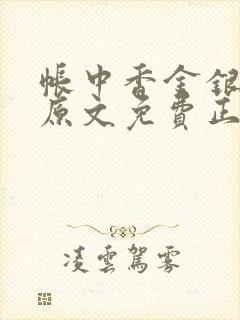 帳中香金銀
原文免費正
凌雲駕霧